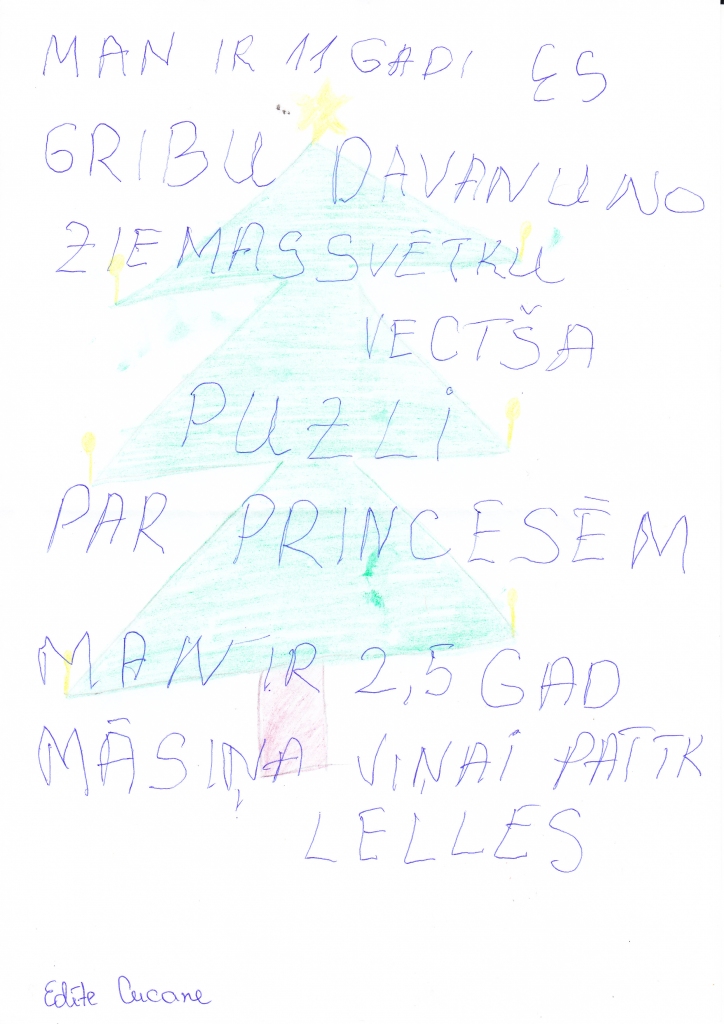 MAN IR 11 GADI ES
GRIBU DAVANU NO
ZIEMASSVĒTKU
VECTŠA
PUZLI
PAR PRINCESĒM
MAN IR 2,5 GAD
MĀSIŅA VIŅAI PATTK
LELLES
Edīte Cucane